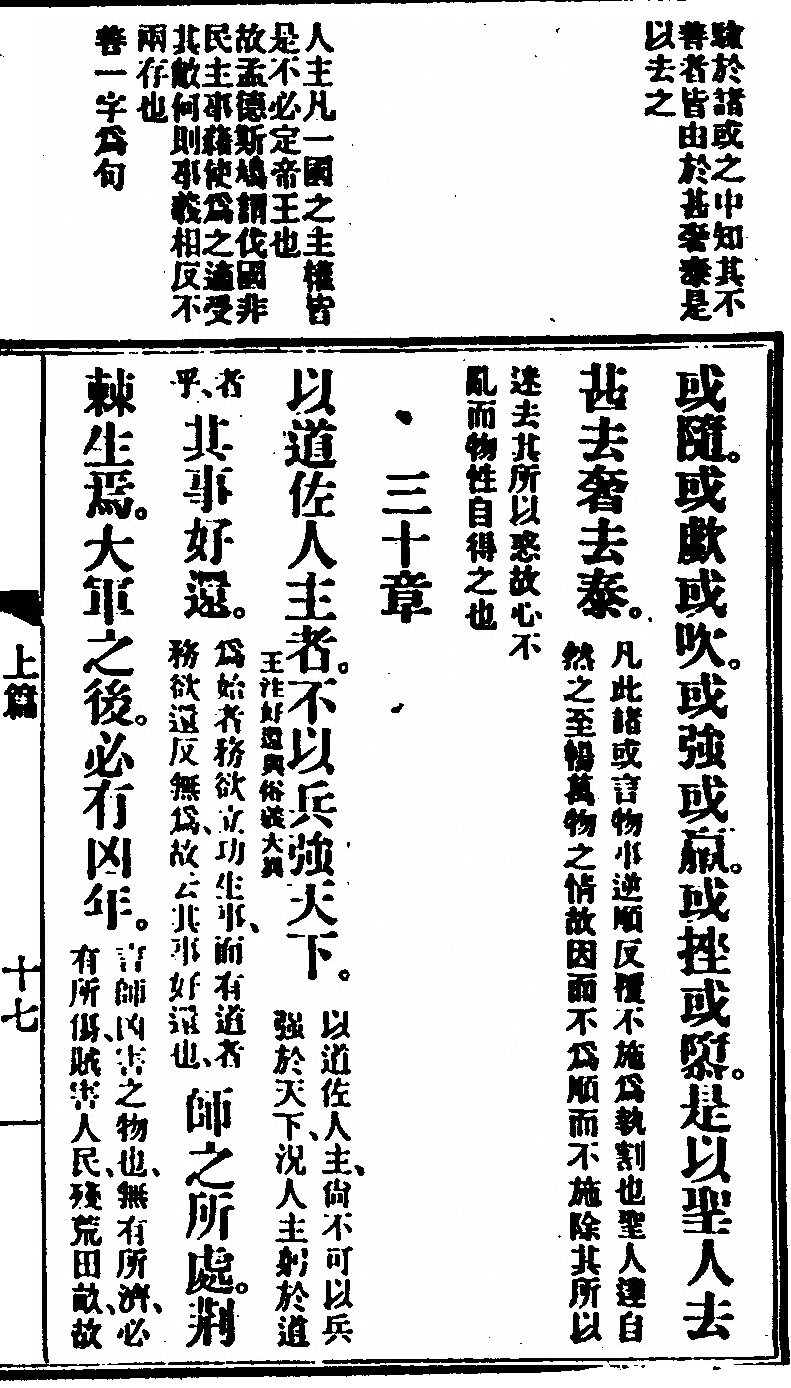 驗於諸或之中知其不
善者皆由於甚奢泰是
以去之
人主凡一國之主權皆
是不必定帝王也
故孟德斯鳩謂伐國非
民主事藉使為之適受
其敵何則事義相反不
兩存也
善一字為句
或隨。或歔或吹。或強或羸。或挫或隳。是以聖人去
甚去奢去泰。
凡此諸或言物事逆順反覆不施為執割也聖人達自
然之至暢萬物之情故因而不為順而不施除其所以
迷去其所以惑故心不
亂而物性自得之也
三十章
以道佐人主者。不以兵強天下。
以道佐人主、尙不可以兵
强於天下、況人主躬於道
王注好還與俗義大異
者
乎、
其事好還。
為始者務欲立功生事、而有道者
務欲還反無為、故云其事好還也、
師之所處。荆
棘生焉。大軍之後。必有凶年。
言師凶害之物也、無有所濟、必
有所傷、賊害人民、殘荒田畝、故
上篇
十七